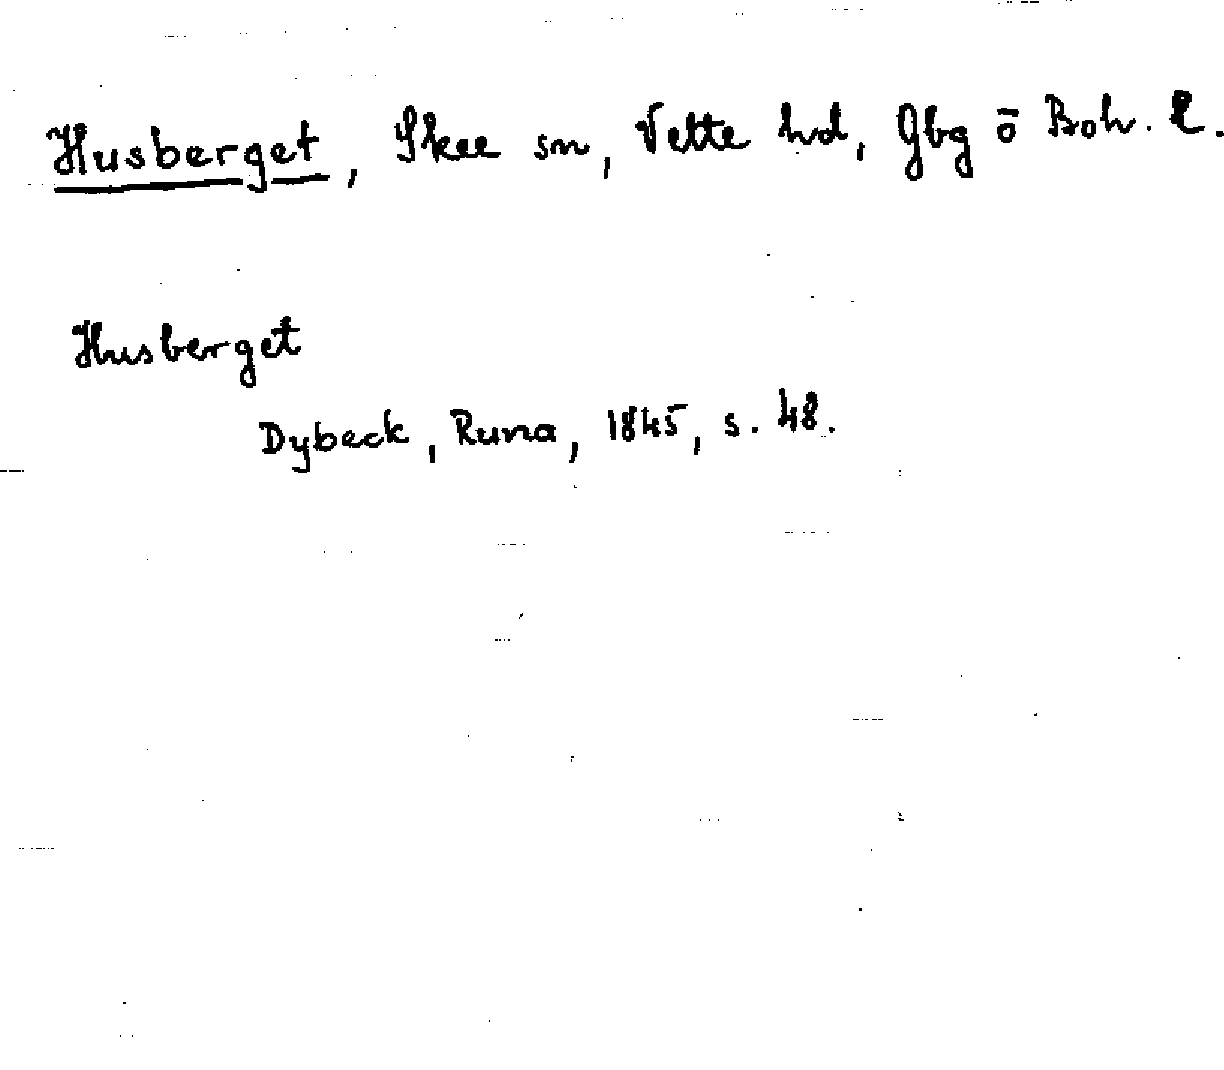 Husberget, Skee sn, Vette hd, Gbg o Boh. l.
Husberget
Dybeck, Runa, 1845, s. 48.